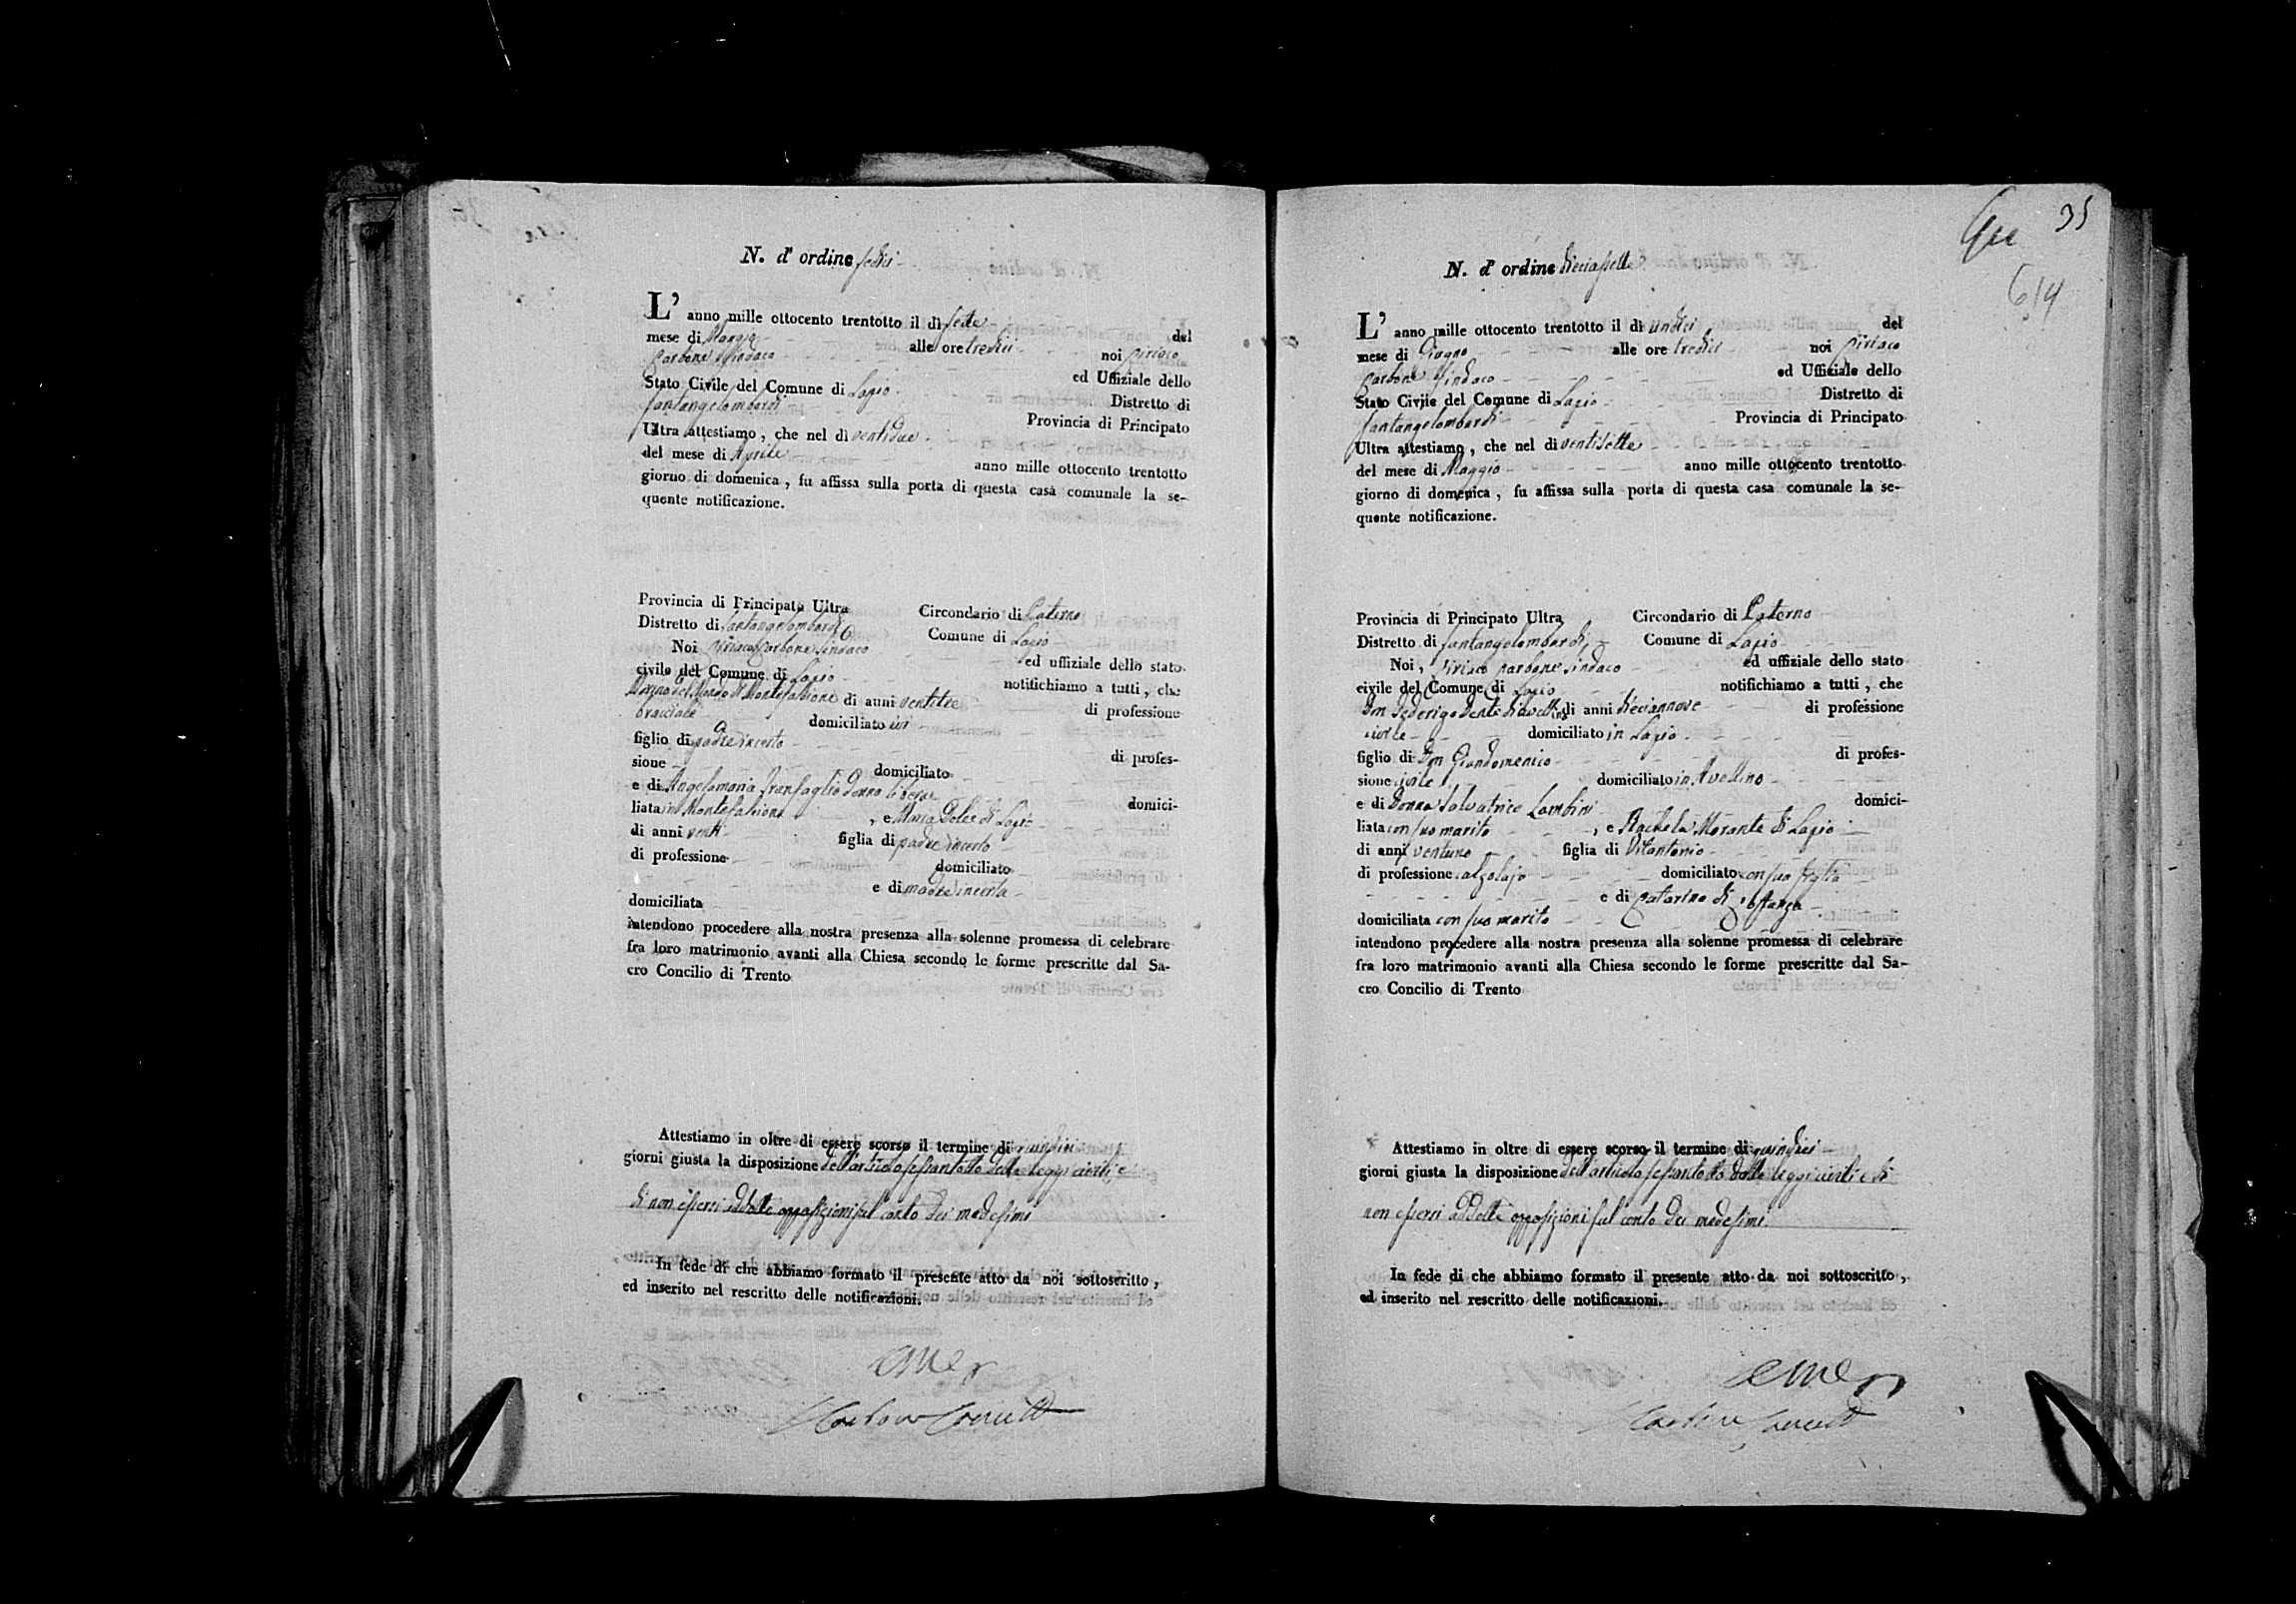 N. d' ordine sedici
L' anno mille ottocento trentotto il dì sette del
mese di Maggio alle ore tredici noi Ciriaco
Carbone Sindaco ed Uffiziale dello
Stato Civile del Comune di Lapio Distretto di
Santangelolombardi Provincia di Principato
Ultra attestiamo, che nel dì ventidue
del mese di Aprile anno mille ottocento trentotto
giorno di domenica, fu affissa sulla porta di questa casa comunale la se-
quente notificazione.
Provincia di Principato Ultra Circondario di Paterno
Distretto di Santangelolombardi Comune di Lapio
Noi Ciriaco Carbone Sindaco ed uffiziale dello stato
civile del Comune di Lapio notifichiamo a tutti, che
del Mondo di Montefalcione di anni ventitre di professione
bracciale domiciliato ivi
figlio di padre incerto di profes-
sione domiciliato
e di Angelamaria Tranfaglio donna libera domici-
liata in Montefalcione, e Maria Dolce di Lapio
di anni venti figlia di padre incerto
di professione domiciliato
e di madre incerta
domiciliata
intendono procedere alla nostra presenza alla solenne promessa di celebrare
fra loro matrimonio avanti alla Chiesa secondo le forme prescritte dal Sa-
cro Concilio di Trento
Attestiamo in oltre di essere scorso il termine di quindici
giorni giusta la disposizione dell'articolo sessantotto delle leggi civili, e
di non essersi addotte opposizioni sul conto dei medesimi
In fede di che abbiamo formato il presente atto da noi sottoscritto,
ed inserito nel rescritto delle notificazioni.
35
614
N. d' ordine diciassette
L' anno mille ottocento trentotto il dì undici del
mese di Giugno alle ore tredici noi Ciriaco
Carbone Sindaco ed Uffiziale dello
Stato Civile del Comune di Lapio Distretto di
Santangelolombardi Provincia di Principato
Ultra attestiamo, che nel dì ventisette
del mese di Maggio anno mille ottocento trentotto
giorno di domenica, fu affissa sulla porta di questa casa comunale la se-
quente notificazione.
Provincia di Principato Ultra Circondario di Paterno
Distretto di Santangelolombardi, Comune di Lapio
Noi, Ciriaco Carbone Sindaco ed uffiziale dello stato
civile del Comune di Lapio notifichiamo a tutti, che
Don Federigo Dente di Avellino di anni diciannove di professione
civile domiciliato in Lapio
figlio di Don Giandomenico di profes-
sione civile domiciliato in Avellino
e di Donna Salvatrice domici-
liata con suo marito, e Rachela Morante di Lapio
di anni ventuno figlia di Vitantonio
di professione calzolajo domiciliato con sua figlia
e di Catarina di
domiciliata con suo marito
intendono procedere alla nostra presenza alla solenne promessa di celebrare
fra loro matrimonio avanti alla Chiesa secondo le forme prescritte dal Sa-
cro Concilio di Trento
Attestiamo in oltre di essere scorso il termine di quindici
giorni giusta la disposizione dell'articolo sessantotto delle leggi civili e di
non essersi addotte opposizioni sul conto dei medesimi.
In fede di che abbiamo formato il presente atto da noi sottoscritto,
ed inserito nel rescritto delle notificazioni.